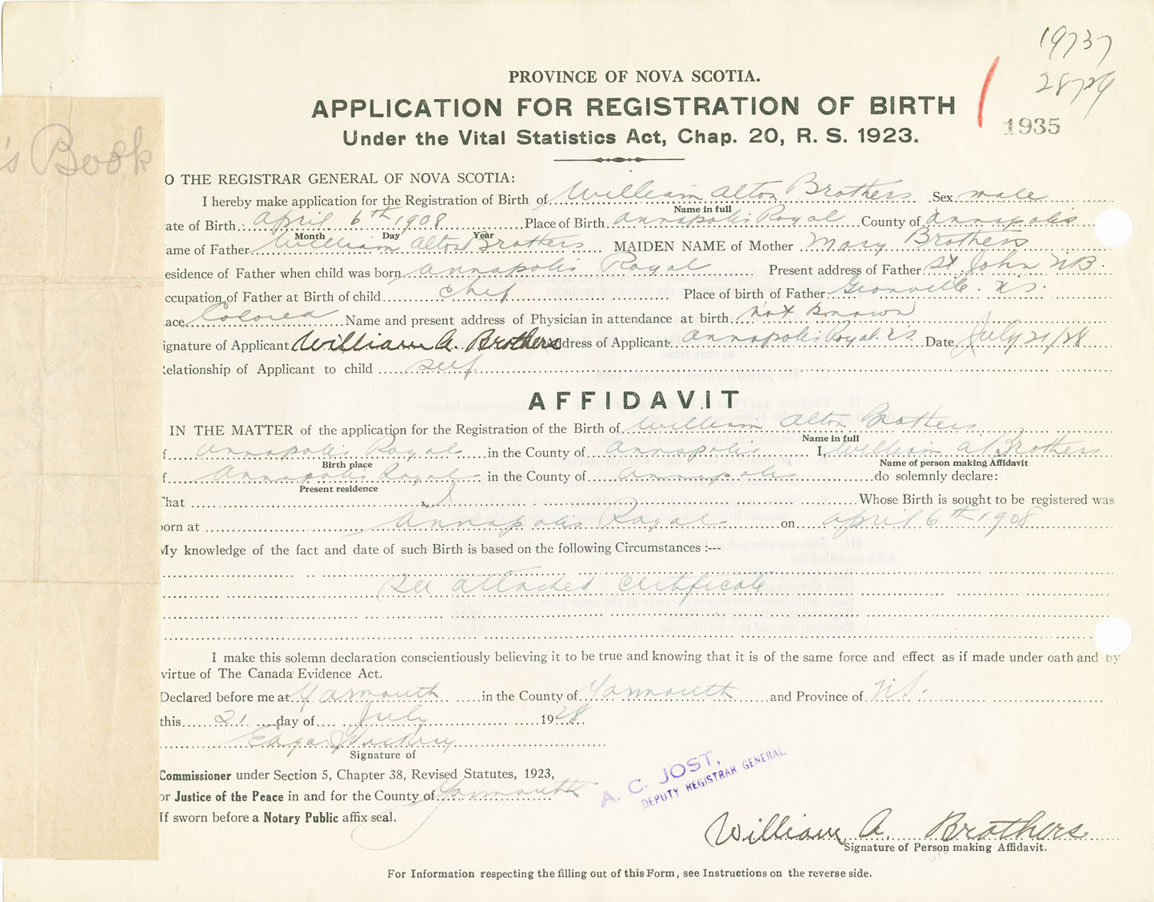 19737
287
1935
's Book
PROVINCE OF NOVA SCOTIA.
APPLICATION FOR REGISTRATION OF BIRTH
Under the Vital Statistics Act, Chap. 20, R. S. 1923.
O THE REGISTRAR GENERAL OF NOVA SCOTIA:
I hereby make application for the Registration of Birth of William Alton Brothers Sex male
Name in full
ate of Birth April 6th 1908 Place of Birth Annapolis Royal County of Annapolis
Month Day Year
ame of Father William Alton Brothers MAIDEN NAME of Mother Mary Brothers
esidence of Father when child was born Annapolis Royal Present address of Father St John NB
ccupation of Father at Birth of child chef Place of birth of Father NS.
ace Colored Name and present address of Physician in attendance at birth not known
ignature of Applicant William A. Brothers Address of Applicant Annapolis Royal Date July 21/28
elationship of Applicant to child self
AFFIDAVIT
IN THE MATTER of the application for the Registration of the Birth of William Alton Brothers
Name in full
f Annapolis Royal in the County of Annapolis I, William A Brothers
Birth place Name of person making Affidavit
f Annapolis Royal in the County of Annapolis do solemnly declare:
Present residence
hat I Whose Birth is sought to be registered was
orn at Annapolis Royal on April 6th 1908
My knowledge of the fact and date of such Birth is based on the following Circumstances :---
See attached certificate
I make this solemn declaration conscientiously believing it to be true and knowing that it is of the same force and effect as if made under oath and by
virtue of The Canada Evidence Act.
Declared before me at Yarmouth in the County of Yarmouth and Province of N.S.
this 21 day of July 1928
Edgar
Signature of
Commissioner under Section 5, Chapter 38, Revised Statutes, 1923,
or Justice of the Peace in and for the County of Yarmouth
If sworn before a Notary Public affix seal.
A. C. JOST,
DEPUTY REGISTRAR GENERAL
William A Brothers
Signature of Person making Affidavit.
For Information respecting the filling out of this Form, see Instructions on the reverse side.